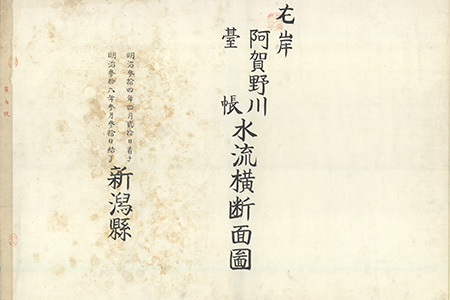 左岸
阿賀野川水流横断面圖
臺帳
明治參拾四年四月貳拾日着手
明治參拾八年參月參拾日結了
新潟縣